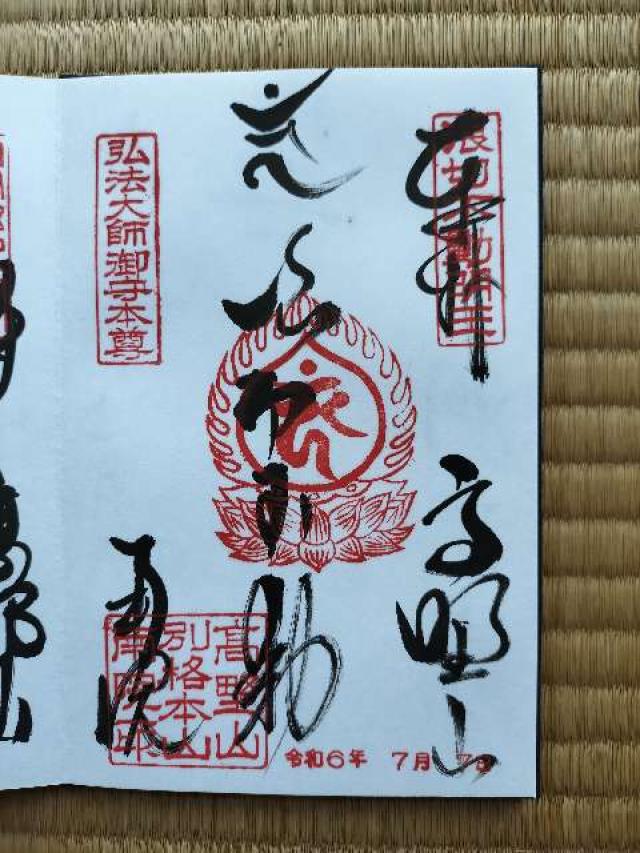 浪切不動明王
奉拝
高野山
浪切不動
弘法大師御守本尊
南院
高野山
別格本山
南院印
令和6年 7月 7日